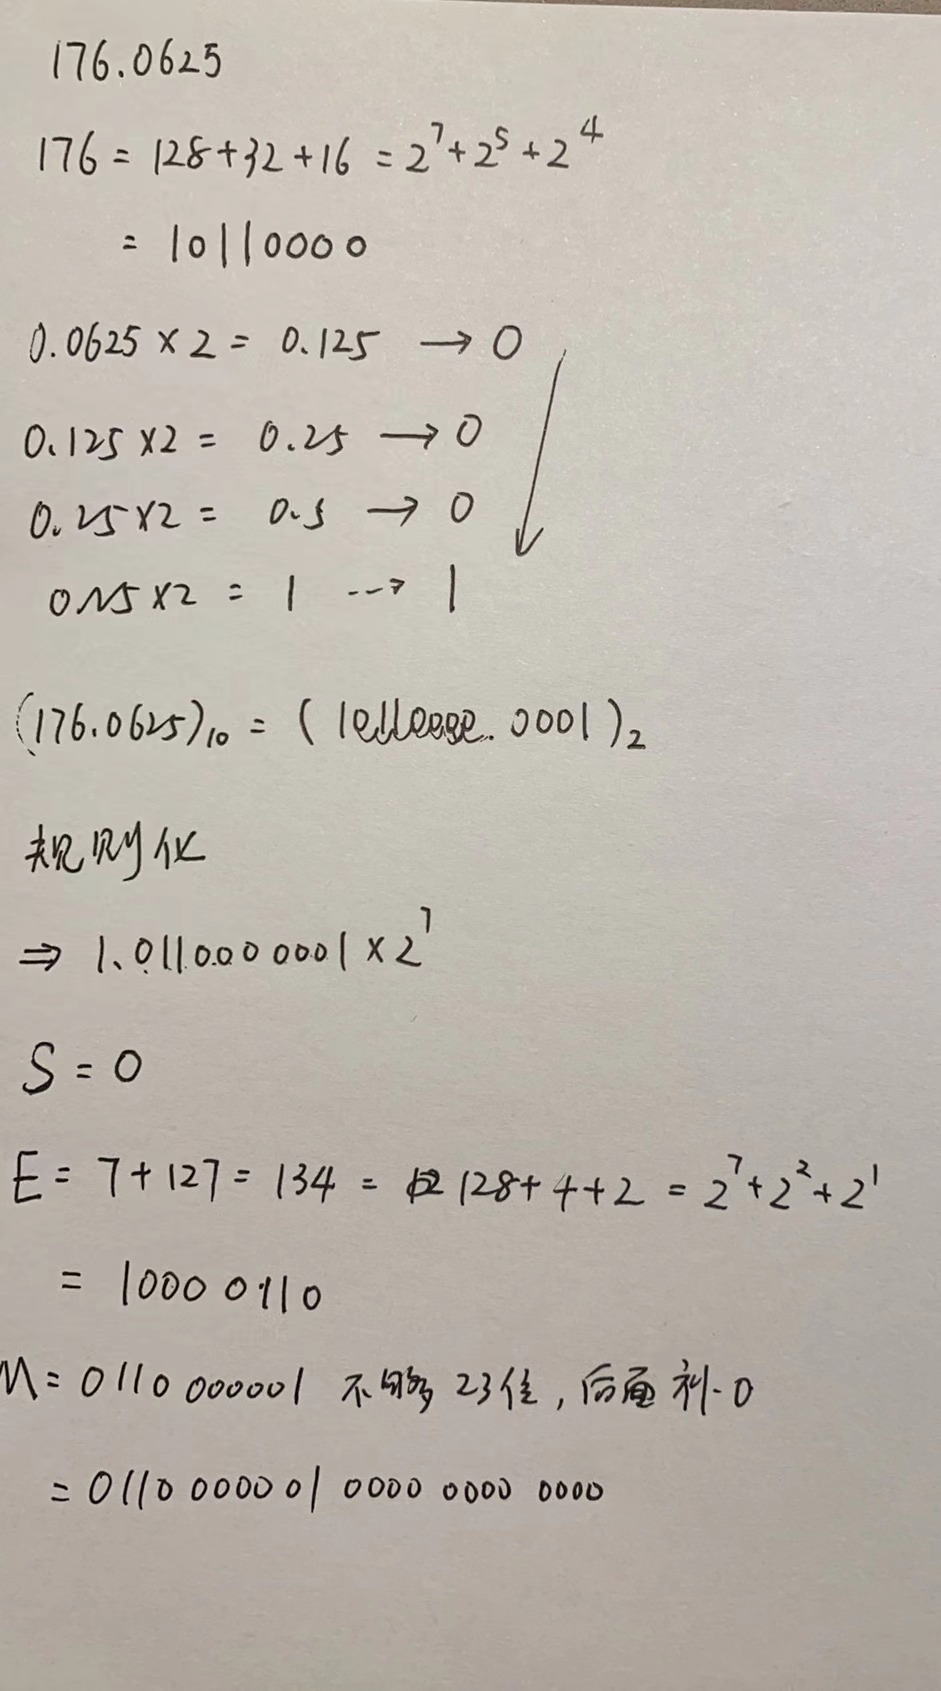 176.0625
176 = 128+32+16 = 2⁷+2⁵+2⁴
= 10110000
0.0625 × 2 = 0.125 → 0
0.125 ×2 = 0.25 → 0
0.25 ×2 = 0.5 → 0
×2 = 1 --→ 1
(176.0625)₁₀ = (10110000.0001)₂
规则化
⇒ 1.01100000001 × 2⁷
S = 0
E = 7+127 = 134 = 128+4+2 = 2⁷+2²+2¹
= 1000 0110
M = 0110 000001 不够23位,后面补0
= 0110 0000 01 0000 0000 0000